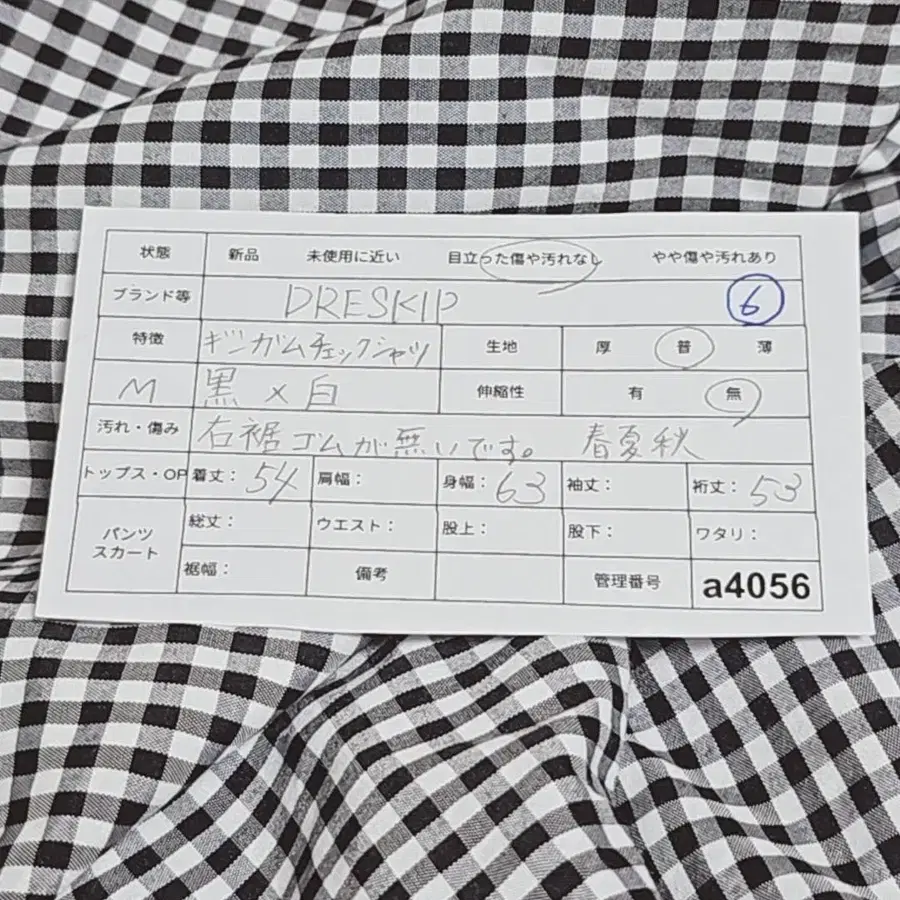 状態 新品 未使用に近い 目立った傷や汚れなし やや傷や汚れあり
ブランド等 DRESKIP 6
特徴 ギンガムチェックシャツ 生地 厚 普 薄
M 黒×白 伸縮性 有 無
汚れ・傷み 右裾ゴムが無いです。 春夏秋
トップス・OP 着丈: 54 肩幅: 身幅: 63 袖丈: 裄丈: 53
パンツ スカート 総丈: ウエスト: 股上: 股下: ワタリ:
裾幅: 備考 管理番号 a4056